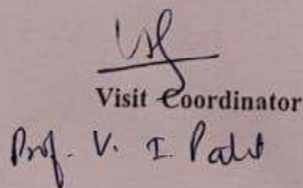 Visit Coordinator
Prof. V. I. Patil